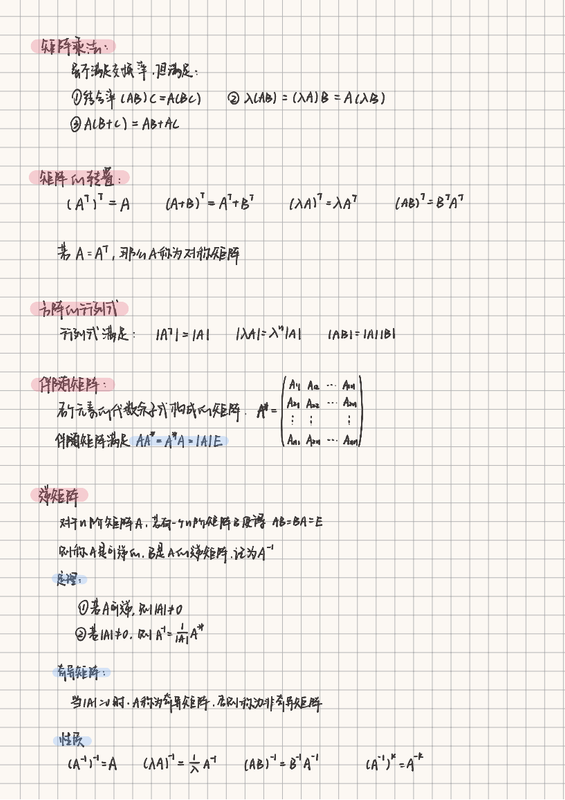 矩阵乘法:
虽不满足交换率,但满足:
①结合率 (AB)C=A(BC) ② λ(AB)=(λA)B=A(λB)
③ A(B+C)=AB+AC
矩阵的转置:
(Aᵀ)ᵀ=A (A+B)ᵀ=Aᵀ+Bᵀ (λA)ᵀ=λAᵀ (AB)ᵀ=BᵀAᵀ
若 A=Aᵀ,那么A称为对称矩阵
方阵的行列式
行列式满足: |Aᵀ|=|A| |λA|=λⁿ|A| |AB|=|A||B|
伴随矩阵:
各个元素的代数余子式构成的矩阵. A*=
A₁₁ A₂₁ … Aₙ₁
A₂₁ A₂₂ … Aₙ₂
⋮ ⋮ ⋮
Aₙ₁ A₂ₙ … Aₙₙ
伴随矩阵满足 AA*=A*A=|A|E
逆矩阵
对于n阶矩阵A,若有一个n阶矩阵B使得 AB=BA=E
则称A是可逆的,B是A的逆矩阵,记为A⁻¹
定理:
①若A可逆,则|A|≠0
②若|A|≠0,则A⁻¹=1/|A| A*
奇异矩阵:
当|A|=0时,A称为奇异矩阵,否则称为非奇异矩阵
性质
(A⁻¹)⁻¹=A (λA)⁻¹=1/λ A⁻¹ (AB)⁻¹=B⁻¹A⁻¹ (A⁻¹)ᵏ=A⁻ᵏ